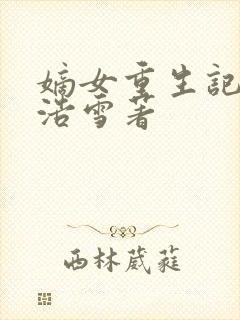 嫡女重生記
浩雪著
西林葳蕤